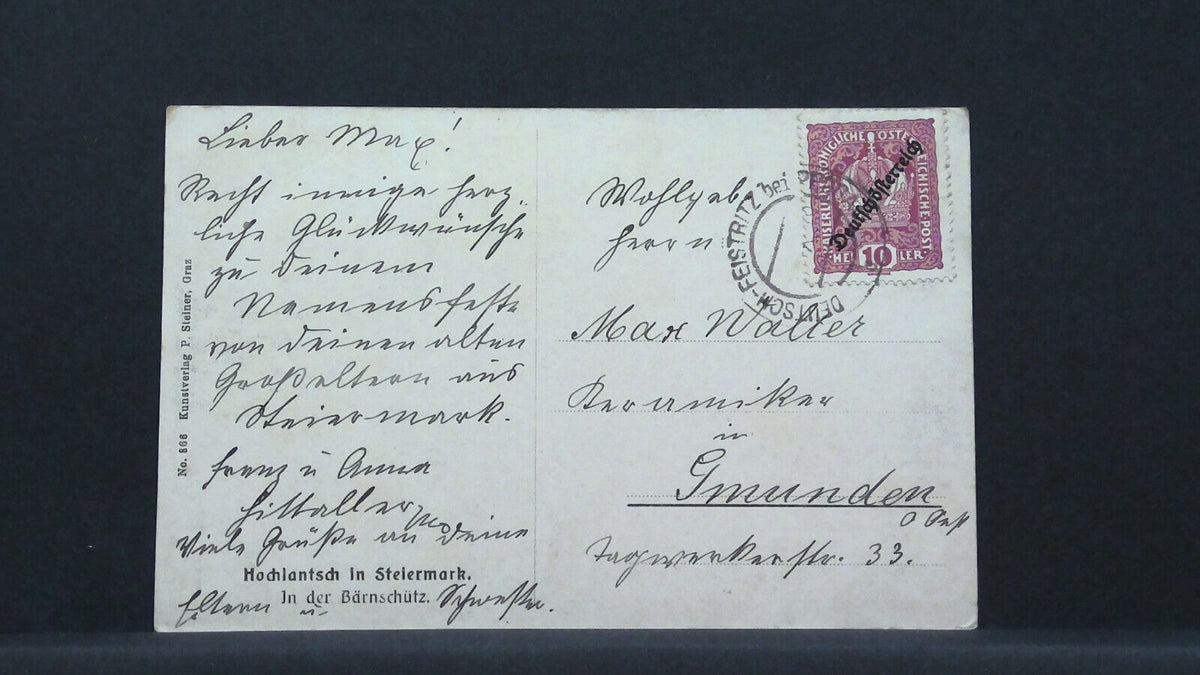 Lieber Max!
Recht innige herz-
liche Glückwünsche
zu Deinem
Namensfeste
von Deinen alten
Großeltern aus
Steiermark.
Franz u Anna
Viele Grüße an Deine
Eltern u Schwester.
Hochlantsch in Steiermark.
In der Bärnschütz.
No. 866 Kunstverlag P. Steiner, Graz
Wohlgeb
Herrn
Max Walter
Keramiker
in
Gmunden
O Öst
Tagwerkerstr. 33.
KAISERLICHE KÖNIGLICHE ÖSTERREICHISCHE POST
Deutschösterreich
10
HELLER
DEUTSCH-FEISTRITZ bei